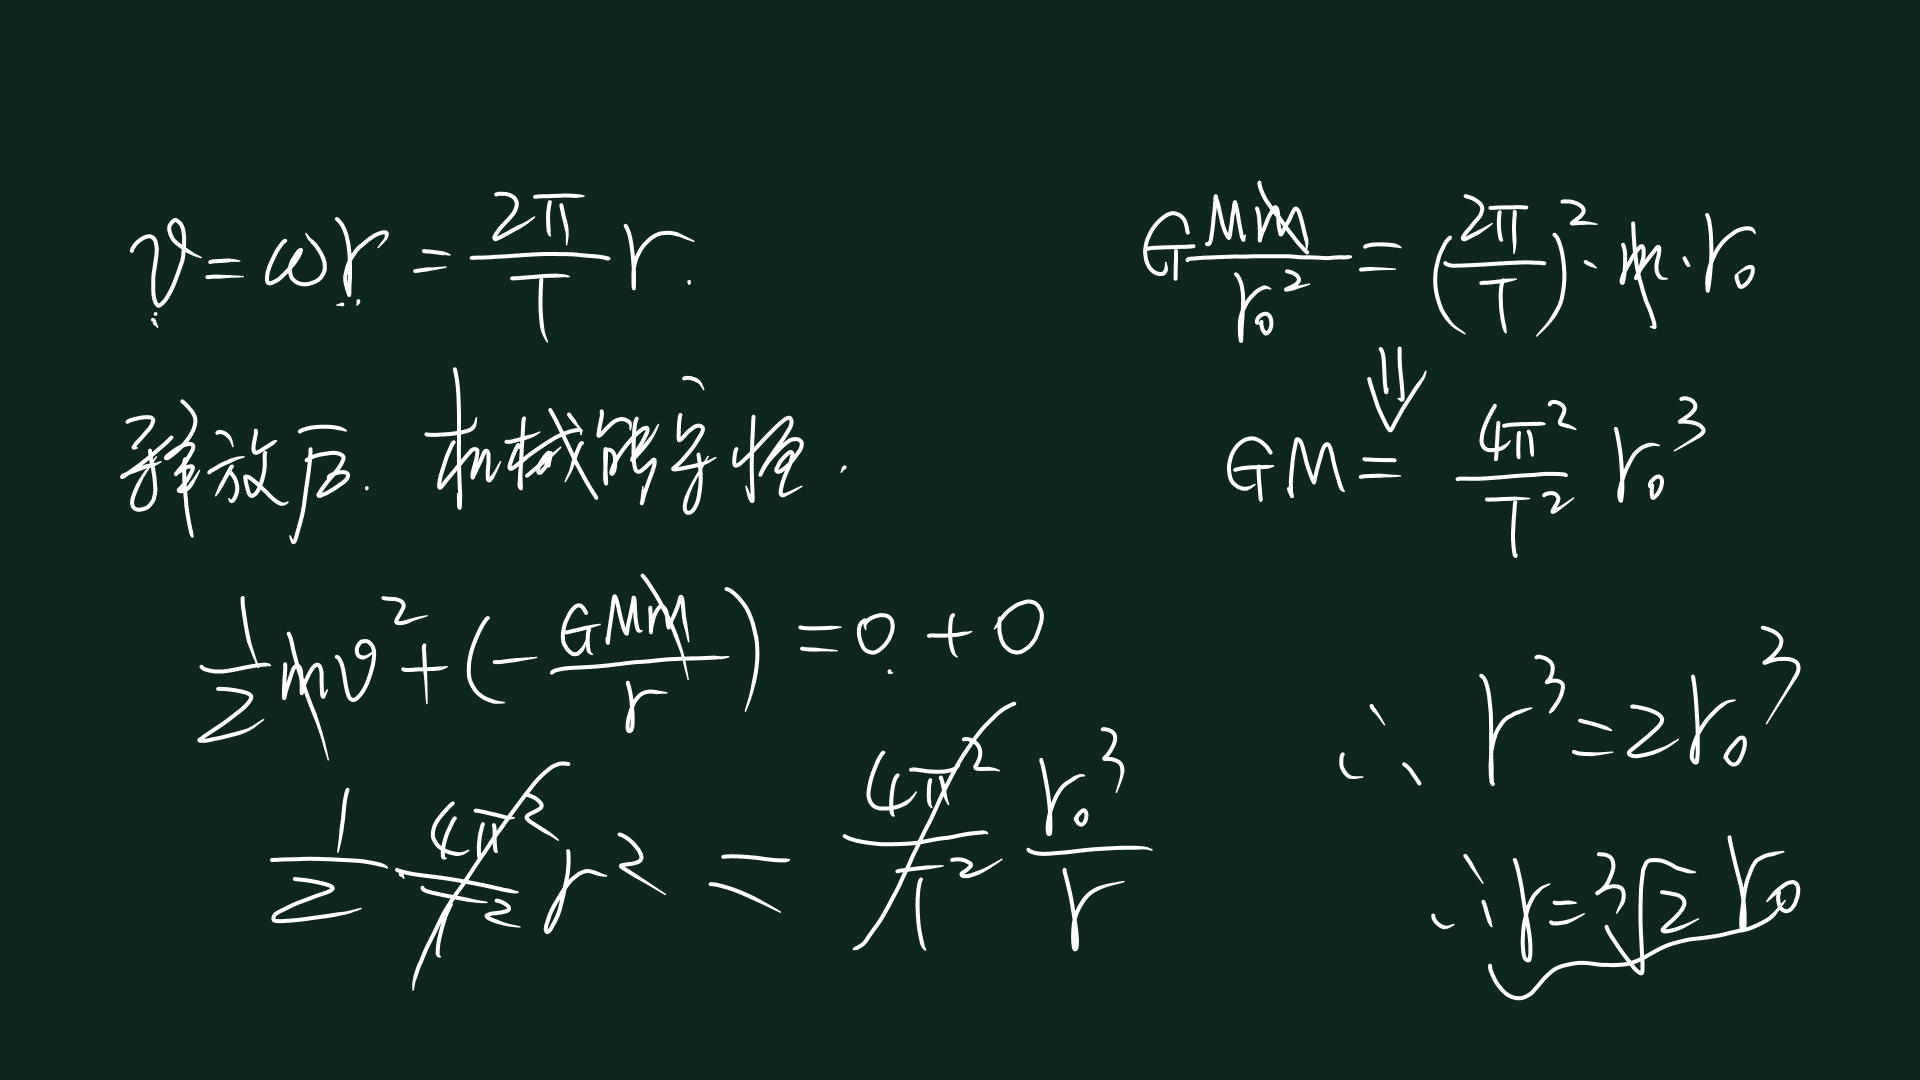 v = ωr = 2π/T r.
释放后. 机械能守恒.
1/2 mv² + (- GMm/r) = 0 + 0
1/2 4π²/T² r² = 4π²/T² r₀³/r
G Mm/r₀² = (2π/T)² · m · r₀
⇓
GM = 4π²/T² r₀³
∴ r³ = 2r₀³
∴ r = ³√2 r₀